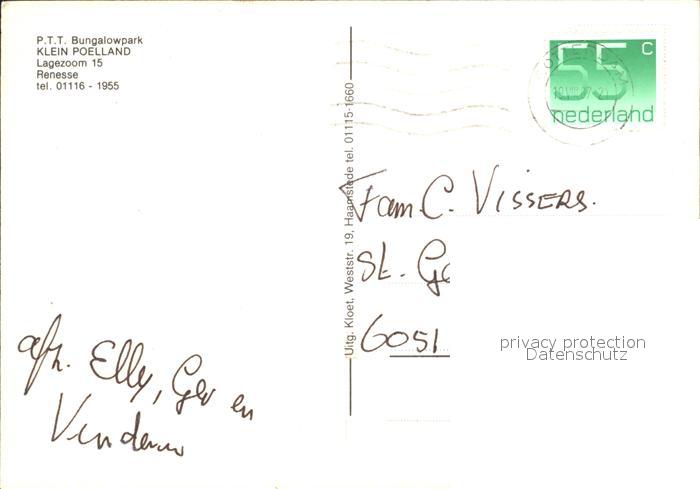 P.T.T. Bungalowpark
KLEIN POELLAND
Lagezoom 15
Renesse
tel. 01116 - 1955
55 c
nederland
Uitg. Kloet, Weststr. 19, Haamstede tel. 01115-1660
Fam. C. Vissers.
St. Ge
6051
privacy protection
Datenschutz
afz. Elly, Ger en